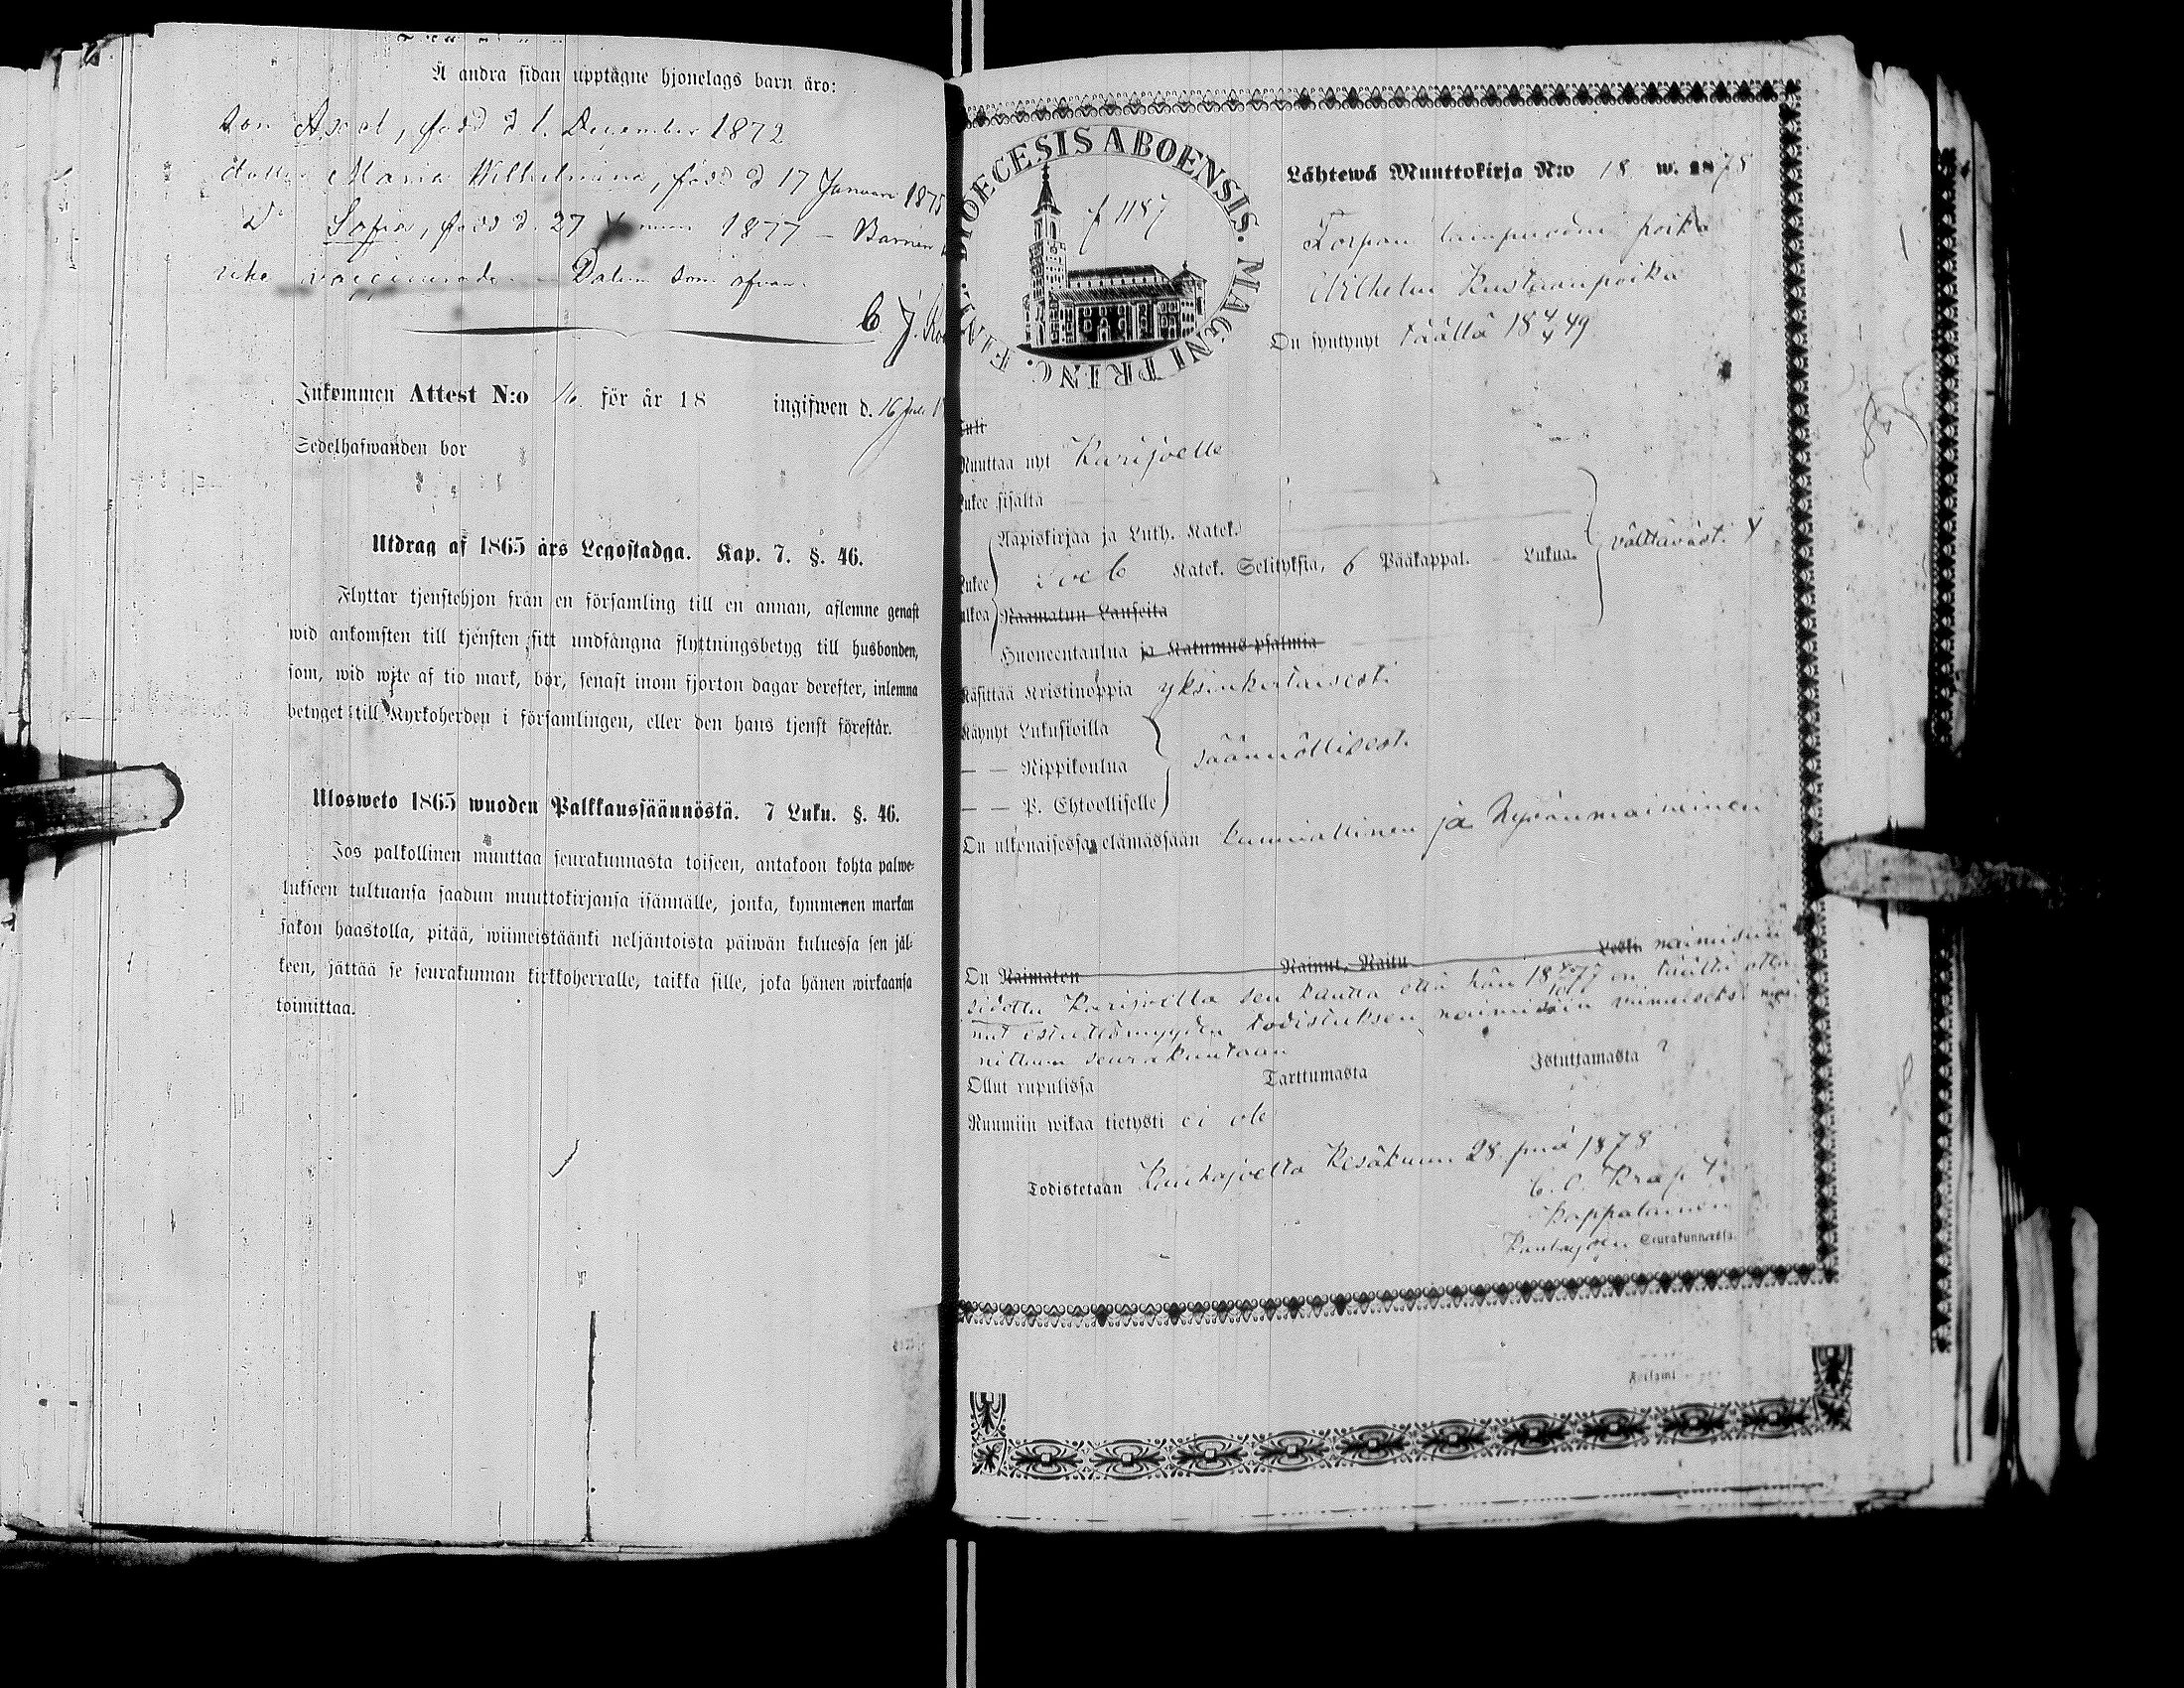 Å andra sidan upptagne hjonelags barn äro:
Son Axel, född d 1. December 1872
dotter Maria Wilhelmina, född d 17 Januari 1875
D:o Sofia, född d. 27 1877 – Barnen
icke vaccinerade Datum som ofvan.
C. J.
Inkommen Attest N:o 16 för år 18 ingifwen d. 16 Juli
Sedelhafwanden bor
Utdrag af 1865 års Legostadga. Kap. 7. §. 46.
Flyttar tjenstehjon från en församling till en annan, aflemne genast
wid ankomsten till tjensten sitt undfångna flyttningsbetyg till husbonden,
som, wid wite af tio mark, bör, senast inom fjorton dagar derefter, inlemna
betyget till Kyrkoherden i församlingen, eller den hans tjenst förestår.
Ulosweto 1865 wuoden Palkkaussäännöstä. 7 Luku. §. 46.
Jos palkollinen muuttaa seurakunnasta toiseen, antakoon kohta palwe-
lukseen tultuansa saadun muuttokirjansa isännälle, jonka, kymmenen markan
sakon haastolla, pitää, wiimeistäänki neljäntoista päiwän kuluessa sen jäl-
keen, jättää se seurakunnan kirkkoherralle, taikka sille, joka hänen wirkaansa
toimittaa.
DIOECESIS ABOENSIS. MAGNI PRINC. FINL.
f 1187
Lähtewä Muuttokirja N:o 18 w. 1878
Torpan lampuodin poika
Wilhelm Kustaanpoika
On syntynyt täällä 18 4/4 49
Tuli
Muuttaa nyt Karijoelle
Lukee sisältä
Aapiskirjaa ja Luth. Katek.
Lukee ulkoa
Katek. Selityksiä, 6 Pääkappal. – Lukua. välttävästi
Raamatun Lauseita
Huoneentaulua ja Katumus-psalmia
Käsittää Kristinoppia yksinkertaisesti
Käynyt Lukusioilla
— — Rippikoulua säännöllisesti
— — P. Ehtoolliselle
On ulkonaisessa elämässään kunniallinen ja hyvänmaineinen
On Naimaton Nainut, Naitu Leski naimisiin
sidottu Karijoella sen kautta että hän 18 77 on täältä otta-
nut esteettömyyden todistuksen naimisiin viimeiseksi mai-
nittuun seurakuntaan
Ollut rupulissa Tarttumasta Istuttamasta ?
Ruumiin wikaa tietysti ei ole
Todistetaan Kauhajoella Kesäkuun 28 p:nä 1878
kappalainen
Kauhajoen Seurakunnassa.